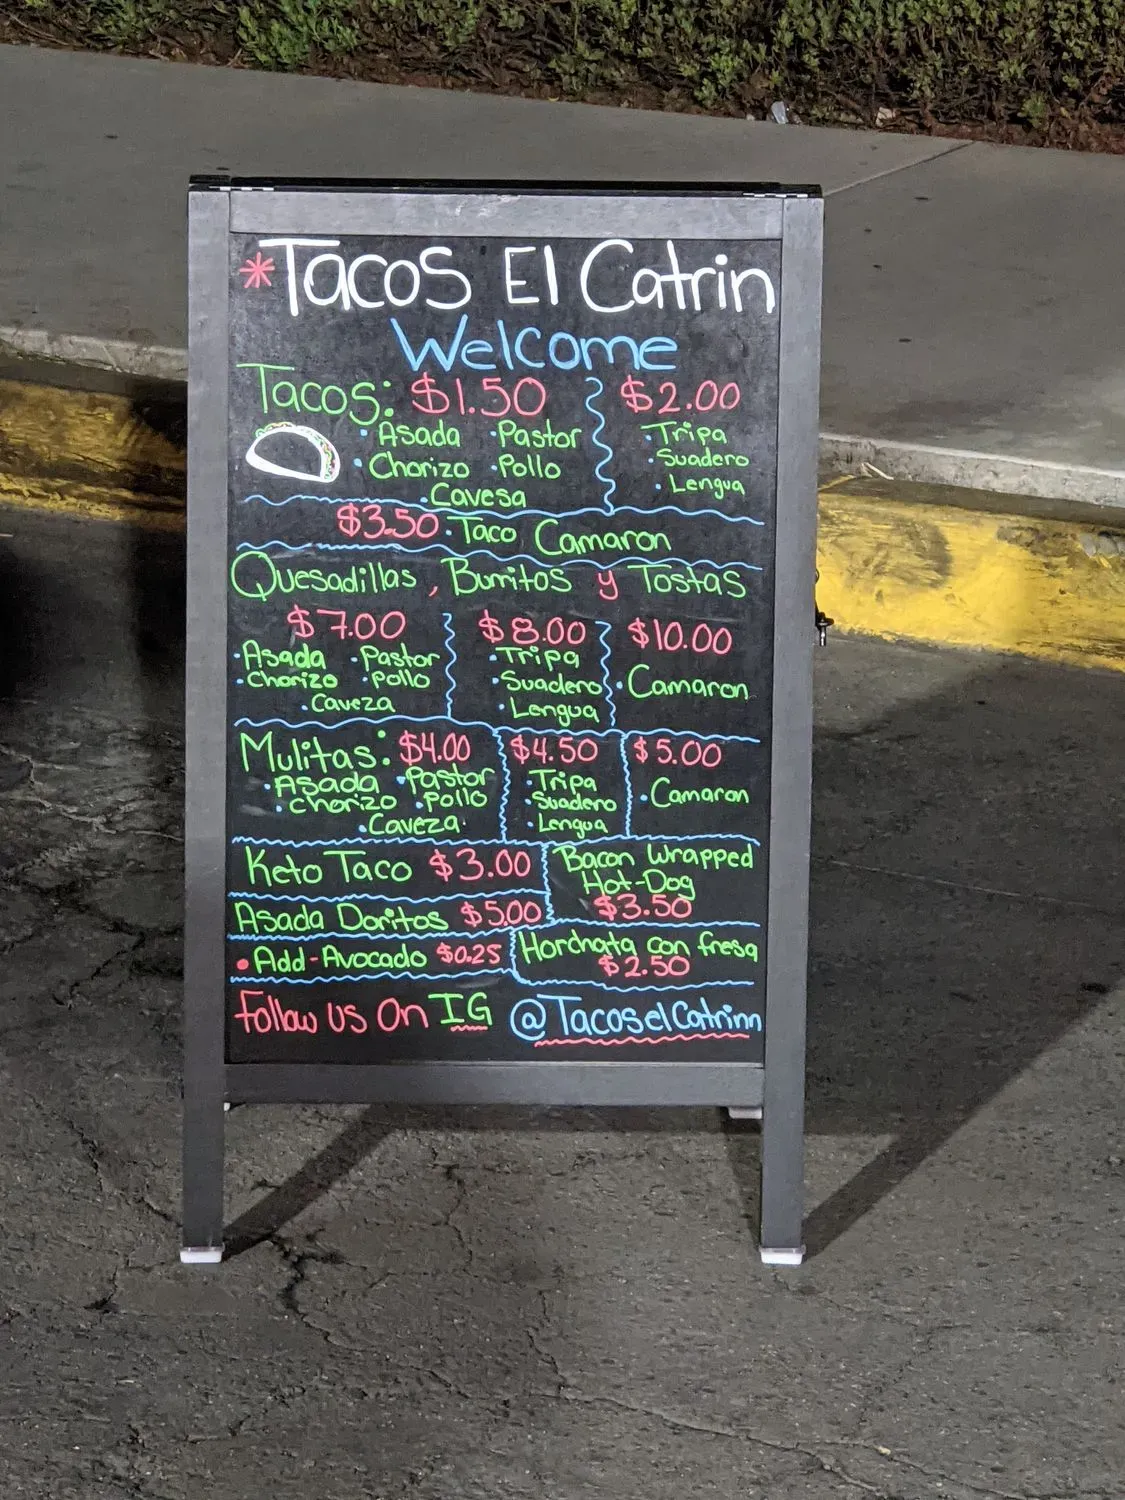 *Tacos El Catrin
Welcome
Tacos: $1.50
·Asada ·Pastor
·Chorizo ·Pollo
·Cavesa
$2.00
·Tripa
·Suadero
·Lengua
$3.50 ·Taco Camaron
Quesadillas, Burritos y Tostas
$7.00
·Asada ·Pastor
·Chorizo ·Pollo
·Caveza
$8.00
·Tripa
·Suadero
·Lengua
$10.00
·Camaron
Mulitas: $4.00
·Asada ·Pastor
·chorizo ·Pollo
·Caveza
$4.50
·Tripa
·Suadero
·Lengua
$5.00
·Camaron
Keto Taco $3.00
Asada Doritos $5.00
·Add-Avocado $0.25
Bacon Wrapped
Hot-Dog
$3.50
Horchata con fresa
$2.50
Follow us On IG @TacoselCatrinn